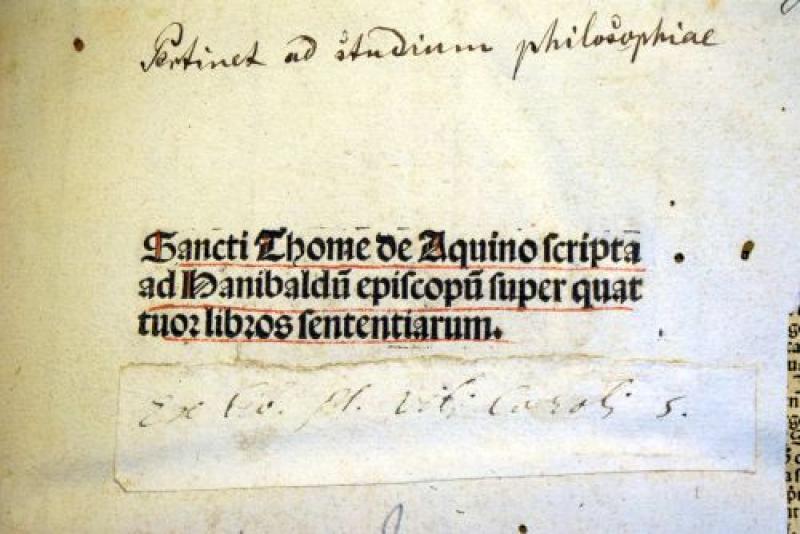 Pertinet ad studium philosophiae
Sancti Thome de Aquino scripta
ad Hanibaldū episcopū super quat
tuor libros sententiarum.
Ex